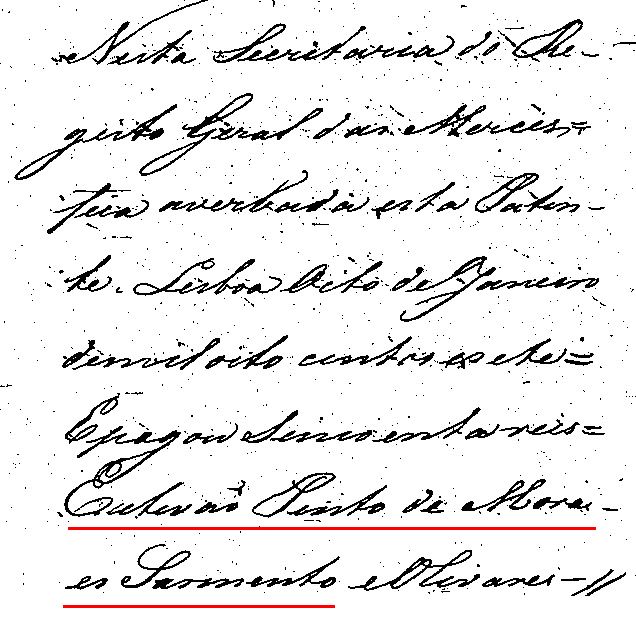 Nesta Secretaria do Re-
gisto Geral das Mercês=
fica averbada esta Paten-
te. Lisboa Oito de Janeiro
de mil oito centos e sete=
E pagou Sincoenta reis=
Estevaõ Pinto de Mora-
es Sarmento e Olivares-//